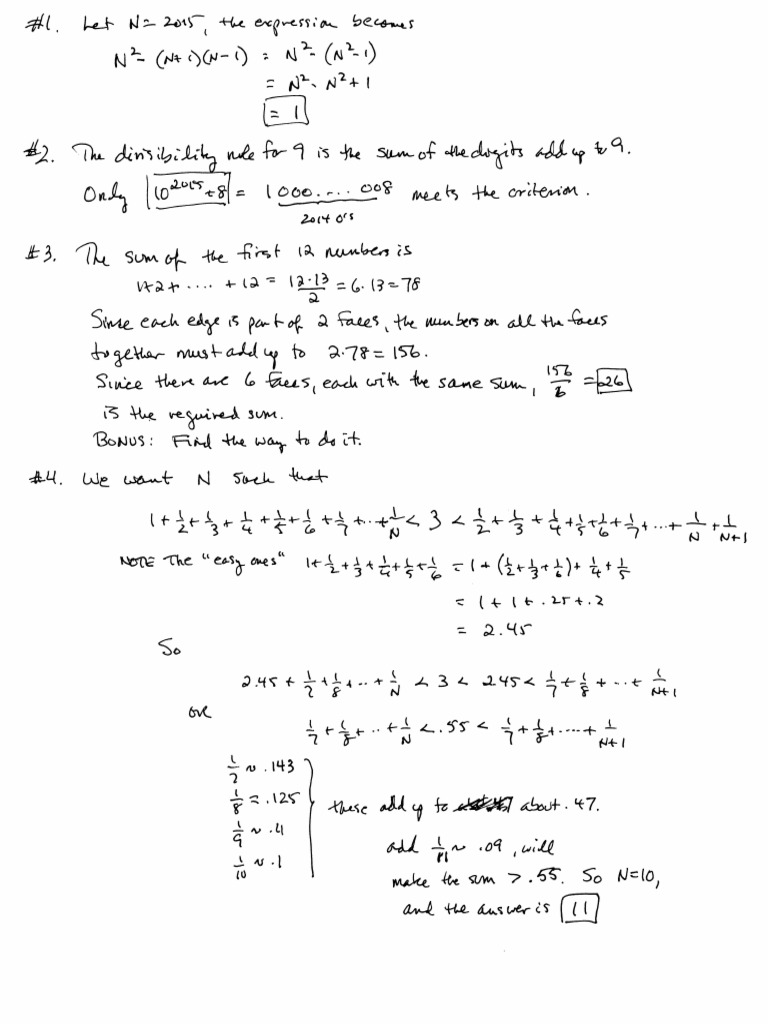 #1. Let N = 2015, the expression becomes
N² - (N+1)(N-1) = N² - (N²-1)
= N² - N² + 1
= 1
#2. The divisibility rule for 9 is the sum of the digits add up to 9.
Only 10^2015 + 8 = 1 000.... 008 meets the criterion.
2014 0's
#3. The sum of the first 12 numbers is
1+2+ .... + 12 = 12·13/2 = 6·13 = 78
Since each edge is part of 2 faces, the numbers on all the faces
together must add up to 2·78 = 156.
Since there are 6 faces, each with the same sum, 156/6 = 26
is the required sum.
BONUS: Find the way to do it.
#4. We want N such that
1 + 1/2 + 1/3 + 1/4 + 1/5 + 1/6 + 1/7 + ... + 1/N < 3 < 1/2 + 1/3 + 1/4 + 1/5 + 1/6 + 1/7 + ... + 1/N + 1/N+1
NOTE The "easy ones" 1 + 1/2 + 1/3 + 1/4 + 1/5 + 1/6 = 1 + (1/2 + 1/3 + 1/6) + 1/4 + 1/5
= 1 + 1 + .25 + .2
= 2.45
So
2.45 + 1/7 + 1/8 + ... + 1/N < 3 < 2.45 < 1/7 + 1/8 + ... + 1/N+1
or
1/7 + 1/8 + ... + 1/N < .55 < 1/7 + 1/8 + .... + 1/N+1
1/7 ~ .143
1/8 = .125
1/9 ~ .11
1/10 ~ .1
these add up to about .47.
add 1/11 ~ .09, will
make the sum > .55. So N=10,
and the answer is 11